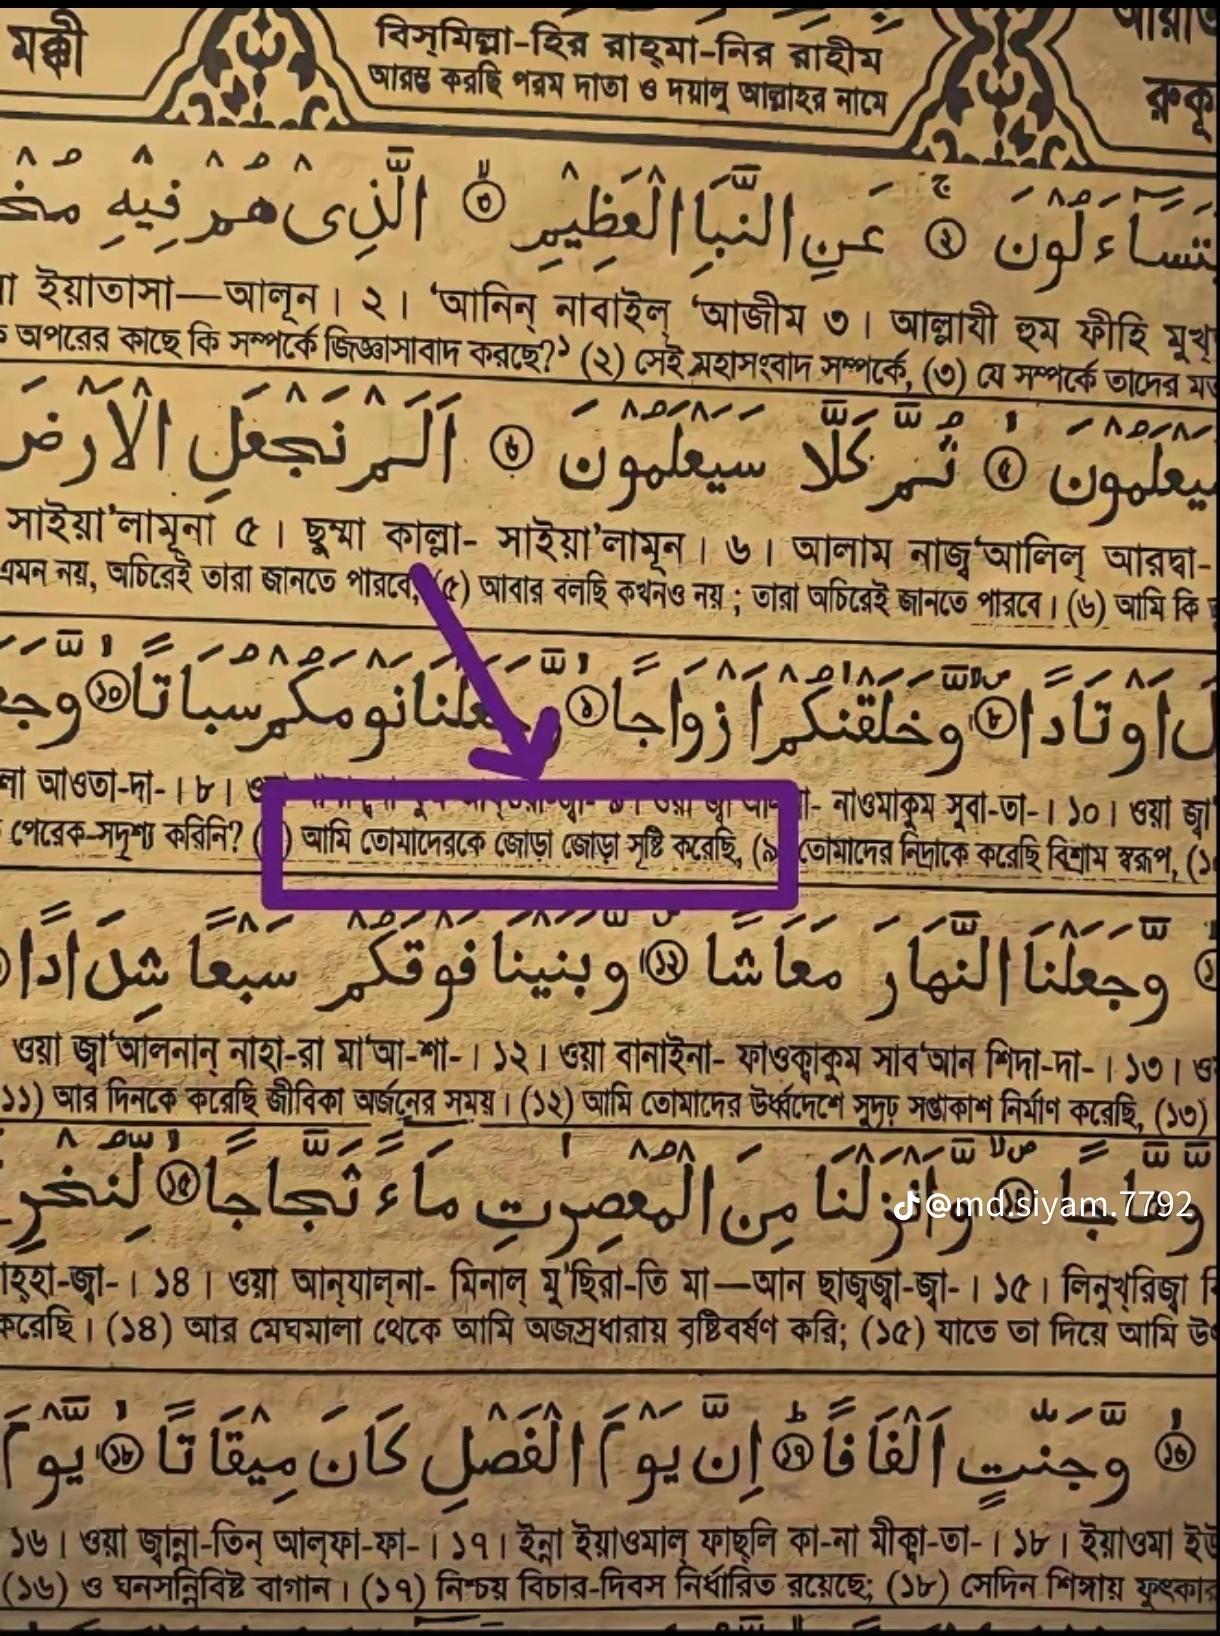 মক্কী
বিস্‌মিল্লা-হির রাহ্‌মা-নির রাহীম
আরম্ভ করছি পরম দাতা ও দয়ালু আল্লাহর নামে
রুকূ
يتساءلون ۚ ② عن النبا العظيم ۙ ③ الذي هم فيه
ইয়াতাসা—আলূন। ২। ‘আনিন্ নাবাইল্ ‘আজীম ৩। আল্লাযী হুম ফীহি
অপরের কাছে কি সম্পর্কে জিজ্ঞাসাবাদ করছে?১ (২) সেই মহাসংবাদ সম্পর্কে, (৩) যে সম্পর্কে তাদের
سيعلمون ⑤ ثم كلا سيعلمون ⑥ الم نجعل الارض
সাইয়া’লামূনা ৫। ছুম্মা কাল্লা- সাইয়া’লামূন। ৬। আলাম নাজ্ব‘আলিল্ আরদ্বা-
এমন নয়, অচিরেই তারা জানতে পারবে, (৫) আবার বলছি কখনও নয়; তারা অচিরেই জানতে পারবে। (৬) আমি কি
اوتادا ⑧ وخلقنكم ازواجا ⑨ وجعلنا نومكم سباتا ⑩
আওতা-দা-। ৮। নাওমাকুম সুবা-তা-। ১০। ওয়া জ্বা
পেরেক-সদৃশ্য করিনি? আমি তোমাদেরকে জোড়া জোড়া সৃষ্টি করেছি, (৯) তোমাদের নিদ্রাকে করেছি বিশ্রাম স্বরূপ,
وجعلنا النهار معاشا ⑫ وبنينا فوقكم سبعا شدادا
ওয়া জ্বা‘আলনান্ নাহা-রা মা‘আ-শা-। ১২। ওয়া বানাইনা- ফাওক্বাকুম সাব‘আন শিদা-দা-। ১৩।
১১) আর দিনকে করেছি জীবিকা অর্জনের সময়। (১২) আমি তোমাদের উর্ধ্বদেশে সুদৃঢ় সপ্তাকাশ নির্মাণ করেছি, (১৩)
وهاجا وانزلنا من المعصرت ماء ثجاجا ⑮ لنخرج
হ্‌হা-জ্বা-। ১৪। ওয়া আন্‌যাল্‌না- মিনাল্ মু‘ছিরা-তি মা—আন ছাজ্বজ্বা-জ্বা-। ১৫। লিনুখ্‌রিজ্বা
করেছি। (১৪) আর মেঘমালা থেকে আমি অজস্রধারায় বৃষ্টিবর্ষণ করি; (১৫) যাতে তা দিয়ে আমি
@md.siyam.7792
⑯ وجنت الفافا ⑰ ان يوم الفصل كان ميقاتا ⑱ يوم
১৬। ওয়া জ্বান্না-তিন্ আল্‌ফা-ফা-। ১৭। ইন্না ইয়াওমাল্ ফাছ্‌লি কা-না মীক্বা-তা-। ১৮। ইয়াওমা
(১৬) ও ঘনসন্নিবিষ্ট বাগান। (১৭) নিশ্চয় বিচার-দিবস নির্ধারিত রয়েছে; (১৮) সেদিন শিঙ্গায় ফুৎকার